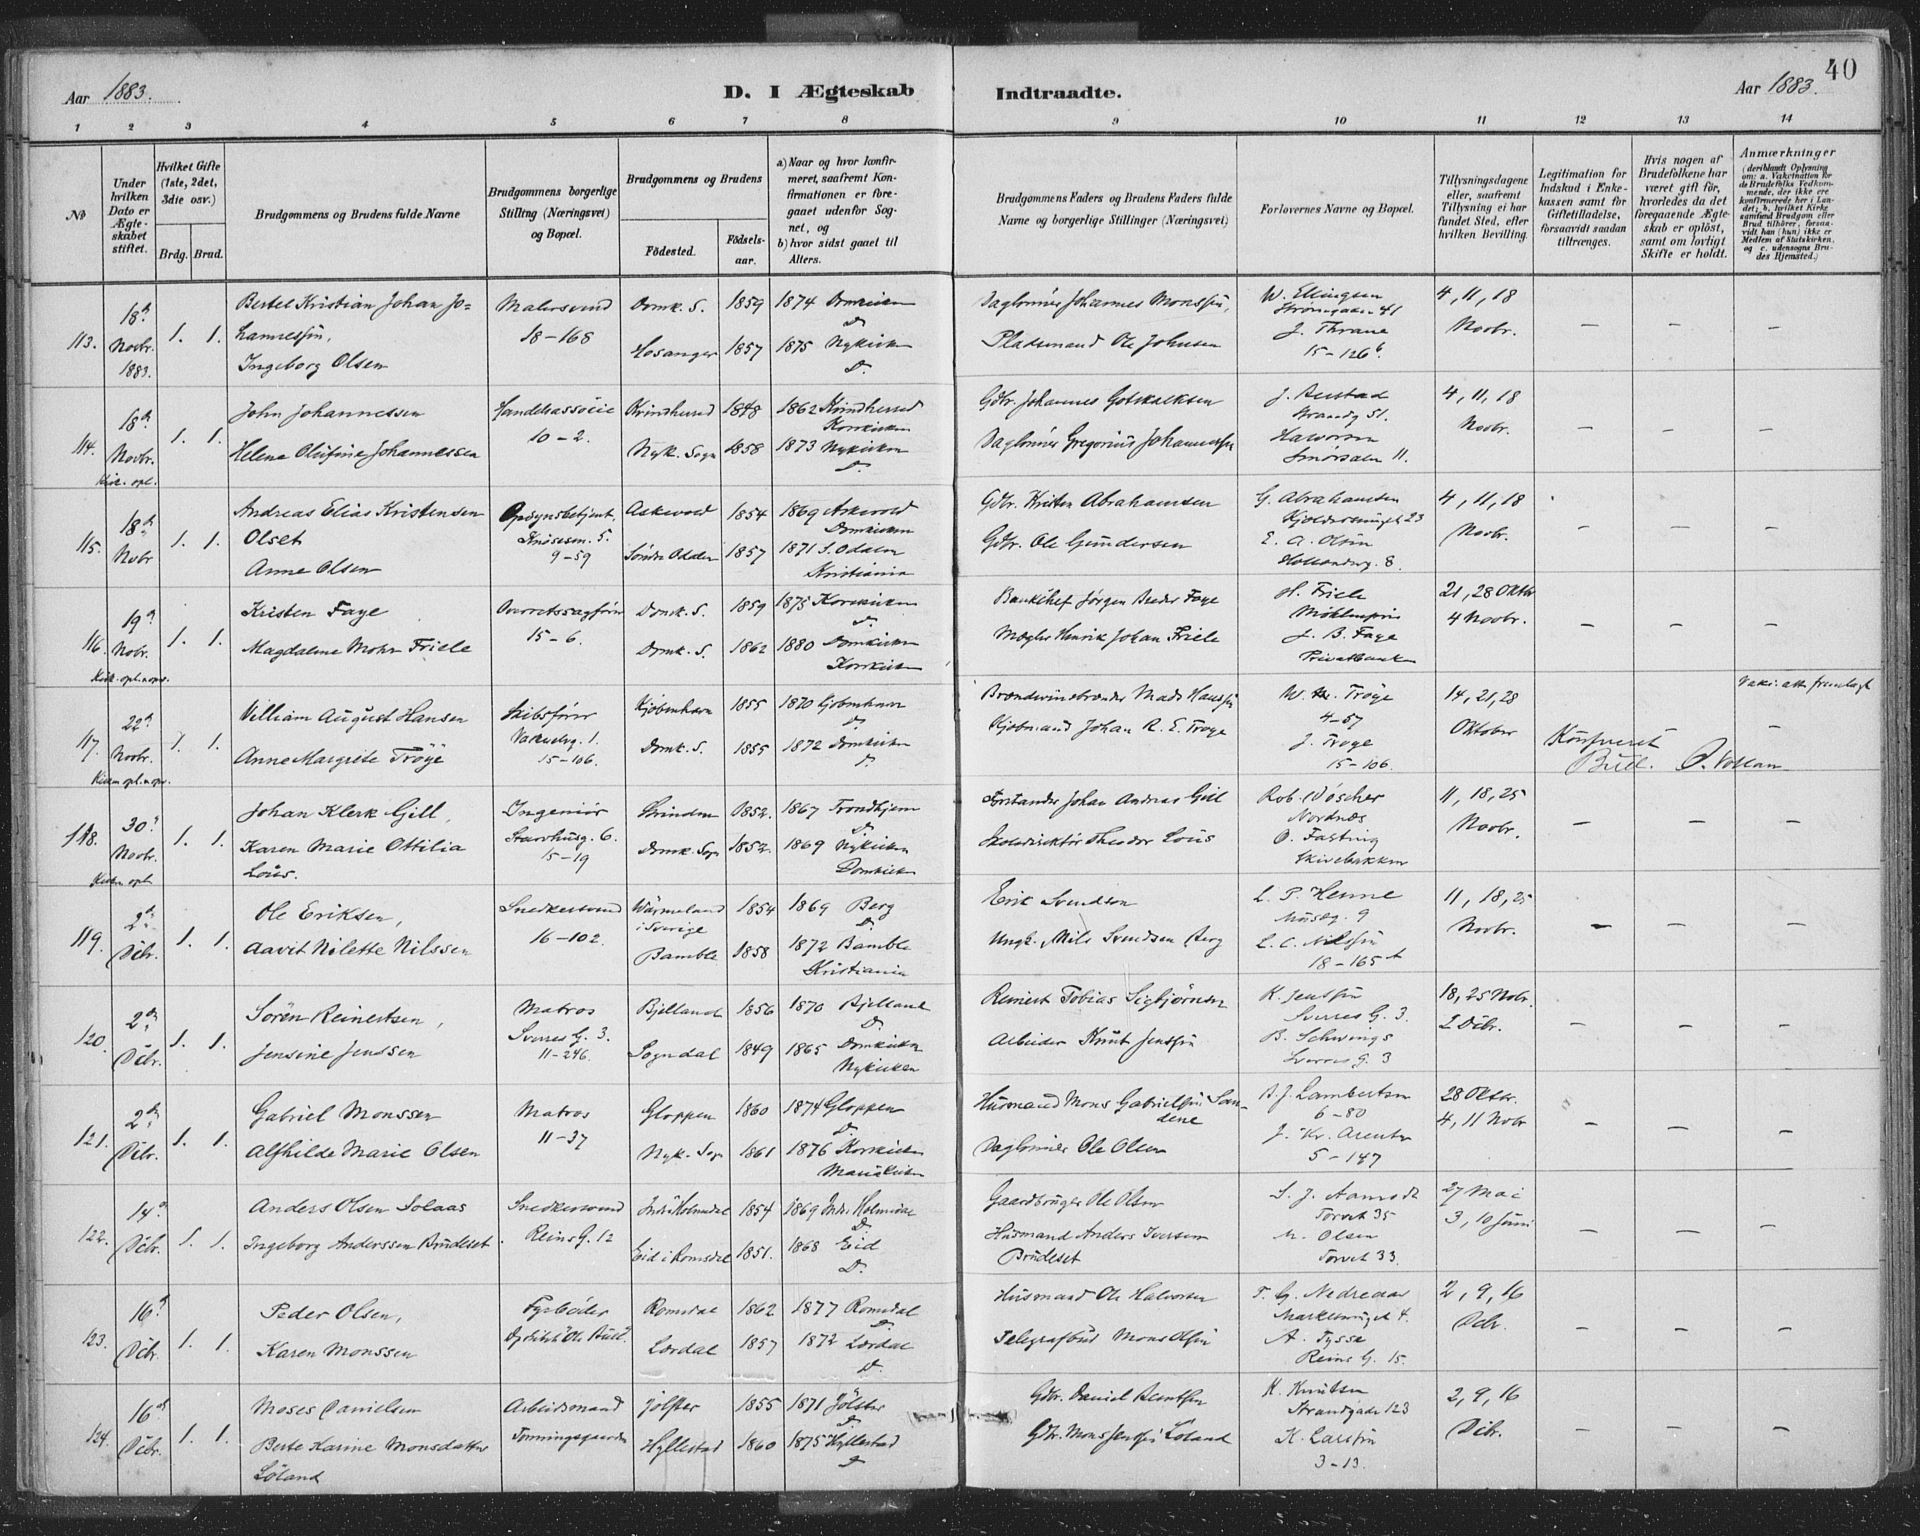 Aar 1883.
D. I Ægteskab
Indtraadte.
Aar 1883.
40
1 2 3 4 5 6 7 8 9 10 11 12 13 14
No
Under hvilken Dato er Ægteskabet stiftet.
Hvilket Gifte (1ste, 2det, 3die osv.)
Brdg. Brud.
Brudgommens og Brudens fulde Navne
Brudgommens borgerlige Stilling (Næringsvei) og Bopæl.
Brudgommens og Brudens
Fødested.
Fødselsaar.
a) Naar og hvor konfirmeret, saafremt Konfirmationen er foregaaet udenfor Sognet, og
b) hvor sidst gaaet til Alters.
Brudgommens Faders og Brudens Faders fulde Navne og borgerlige Stillinger (Næringsvei)
Forlovernes Navne og Bopæl.
Tillysningsdagene eller, saafremt Tillysning ei har fundet Sted, efter hvilken Bevilling.
Legitimation for Indskud i Enkekassen samt for Giftetilladelse, forsaavidt saadan tiltrænges.
Hvis nogen af Brudefolkene har været gift før, hvorledes da det foregaaende Ægteskab er opløst, samt om lovligt Skifte er holdt.
Anmærkninger
(deriblandt Oplysning om: a. Vakcination for de Brudefolks Vedkommende, der ikke ere konfirmerede her i Landet; b. hvilket Kirkesamfund Brudgom eller Brud tilhører, forsaavidt han (hun) ikke er Medlem af Statskirken, og c. udensogns Brudes Hjemsted.)
113. 18de Novbr. 1883. 1. 1.
Bertel Kristian Johan Johannessen,
Ingeborg Olsen
Malersvend
18-168
Domk. S. 1859 1874 Domkirken
D.
Hosanger 1857 1875 Nykirken
D.
Daglønner Johannes Monssen,
Pladsmand Ole Johnsen
W. Ellingsen
Strømgaden 41
J. Thrane
15-126b.
4, 11, 18
Novbr.
114. 18de Novbr. Kirk. opl. 1. 1.
John Johannessen
Helene Olufine Johannessen
Handelsassocie
10-2.
Kvindherred 1848 1862 Kvindherred
Korskirken
Nyk. Sogn 1858 1873 Nykirken
D.
Gdbr. Johannes Gotskalksen
Daglønner Gregorius Johannessen
J. Austad
Strandg 51.
Halvorsen
Smørsalm 11.
4, 11, 18
Novbr.
115. 18de Novbr 1. 1.
Andreas Elias Kristensen
Olset
Anne Olsen
Opsynsbetjent,
9-59
Askevold 1854 1869 Askevold
Domkirken
Søndre Odalen 1857 1871 S. Odalen
Kristiania
Gdbr. Kristen Abrahamsen
Gdbr. Ole Gundersen
G. Abrahamsen
23
E. A. Olsen
8.
4, 11, 18
Novbr.
116. 19de Novbr. 1. 1.
Kristen Faye
Magdalene Mohr Friele
Overretssagfører
15-6.
Domk. S. 1859 1875 Korskirken
D.
Domk. S. 1862 1880 Domkirken
Korskirken
Bankchef Jørgen Breder Faye
Mægler Henrik Johan Friele
H. Friele
Møhlenpris
J. B. Faye
Privatbanken
21, 28 Oktbr
4 Novbr.
117. 22de Novbr. 1. 1.
Villiam August Hansen
Anne Margrete Trøye
Skibsfører
15-106.
Kjøbenhavn 1855 1870 Kjøbenhavn
D.
Domk. S. 1855 1872 Domkirken
D.
Brændevinsbrænder Mads Hanssen
Kjøbmand Johan R. E. Troye
W. Trøye
4-57
J. Troye
15-106.
14, 21, 28
Oktober
Vakc. att. fremlagt
Konfereret
Bull. O. Vollan
118. 30te Novbr. 1. 1.
Johan Klerk Gill,
Karen Marie Ottilia
Løus.
Ingeniør
6.
15-19
Strinden 1852. 1867 Trondhjem
D.
Domk. Sogn 1852. 1869 Nykirken
Domkirken
Forstander Johan Andreas Gill
Skoledirektør Theodor Løus
Rob. Wöscher
Nordnæs
O. Fasting
Skivebakken
11, 18, 25
Novbr.
119. 2den Dcbr. 1. 1.
Ole Eriksen,
Aavit Nilette Nilssen
Snedkersvend
16-102.
Wärmeland
i Sverige 1854 1869 Berg
D.
Bamble 1858 1872 Bamble
Kristiania
Erik Svendson
Ungk. Nils Svendsen Berg
L. P. Henne
9
L. C. Nilssen
18-165 A
11, 18, 25
Novbr.
120. 2den Dcbr. 1. 1.
Søren Reinertsen,
Jensine Jenssen
Matros
Sverres G. 3.
11-246.
Bjelland 1856 1870 Bjelland
D.
Sogndal 1849 1865 Domkirken
Nykirken
Reinert Tobias Sigbjørnsen
Arbeider Knut Jenssen
K. Jenssen
Sverres G. 3.
B. Schwings
Sverres G. 3
18, 25 Novbr.
2 Dcbr.
121. 2den Dcbr. 1. 1.
Gabriel Monssen
Alfhilde Marie Olsen
Matros
11-37
Gloppen 1860 1874 Gloppen
D.
Nyk. Sogn 1861 1876 Korskirken
Mariakirken
Husmand Mons Gabrielsen Sandene
Daglønner Ole Olsen
A. J. Lambertsen
6-80
J. Kr. Arentz
5-147
28 Oktbr.
4, 11 Novbr
122. 14de Dcbr. 1. 1.
Anders Olsen Solaas
Ingeborg Anderssen Brudeset
Snedkersvend
Reins G. 12
Indre Holmedal 1854 1869 Indr. Holmedal
D.
Eid i Romsdal 1851. 1868 Eid
D.
Gaardbruger Ole Olsen
Husmand Anders Iversen
Brudeset
S. J. Aamodt
Torvet 35
M. Olsen
Torvet 33.
27 Mai
3, 10 Juni
123. 16de Dcbr. 1. 1.
Peder Olsen,
Karen Monssen
Fyrbøder
Romsdal 1862 1877 Romsdal
D.
Lærdal 1857 1872 Lærdal
D.
Husmand Ole Halvorsen
Telegrafbud Mons Olsen
T. G. Nedreaas
4.
A. Tysse
Reins G. 15.
2, 9, 16
Dcbr.
124. 16de Dcbr. 1. 1.
Moses Danielsen
Berte Karine Monsdatter
Løland
Arbeidsmand
Jølster 1855 1871 Jølster
D.
Hyllestad 1860 1875 Hyllestad
D.
Gdbr. Daniel Bentsen
Gdbr. Mons Jensen Løland
K. Knutsen
Strandgade 123
K. Larsen
3-13.
2, 9, 16
Dcbr.